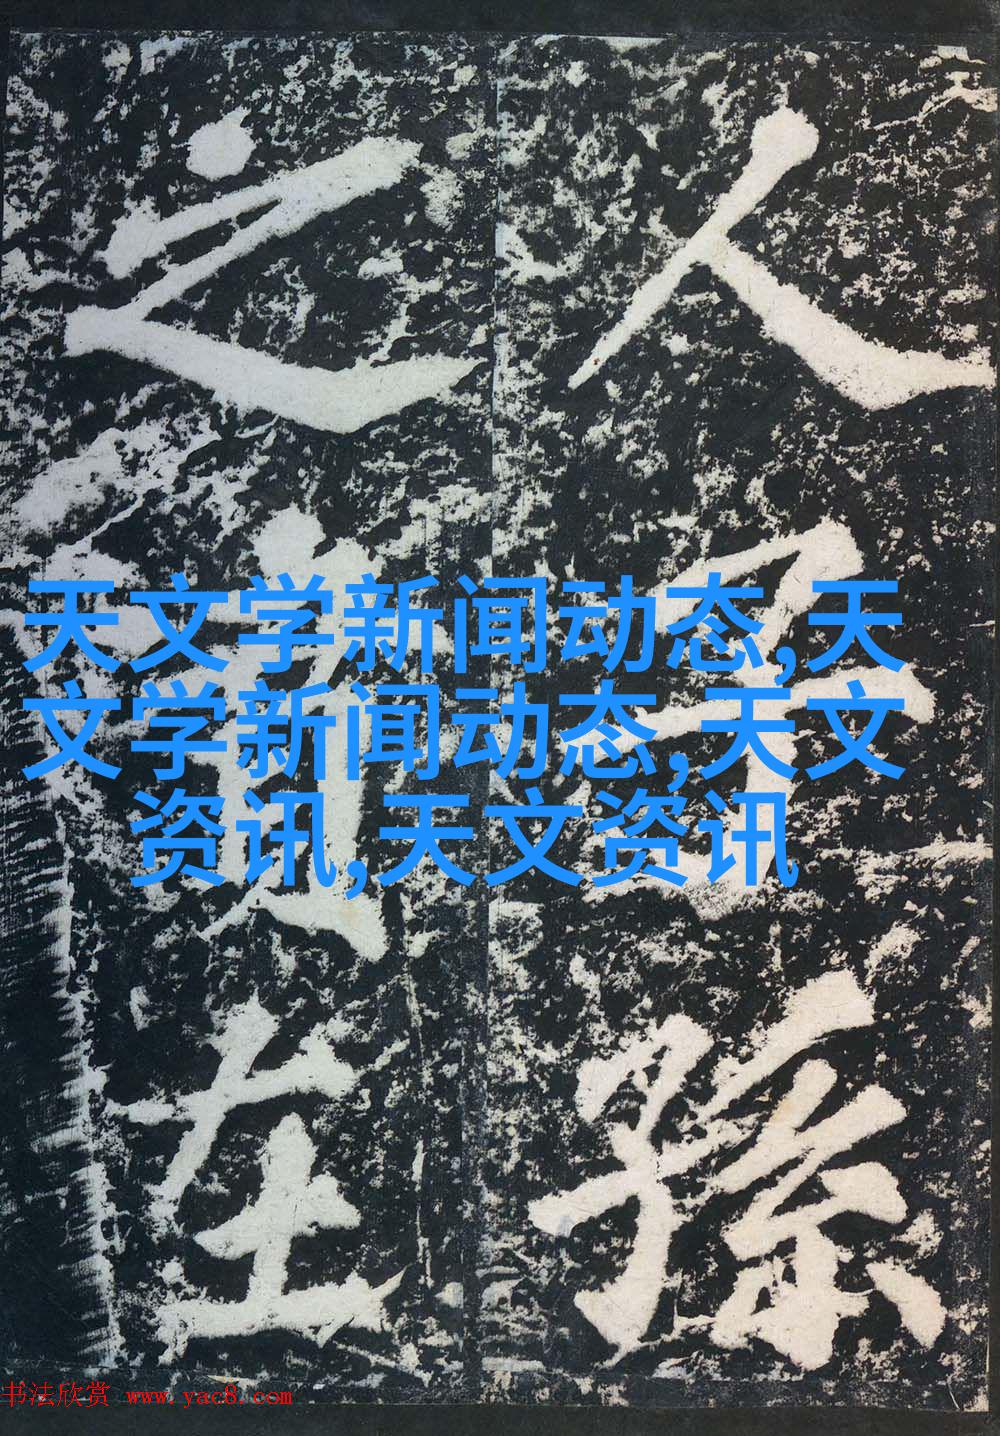 人
孫
之
在
天文学新闻动态,天
文学新闻动态,天文
资讯,天文资讯
书法欣赏 www.yac8.com